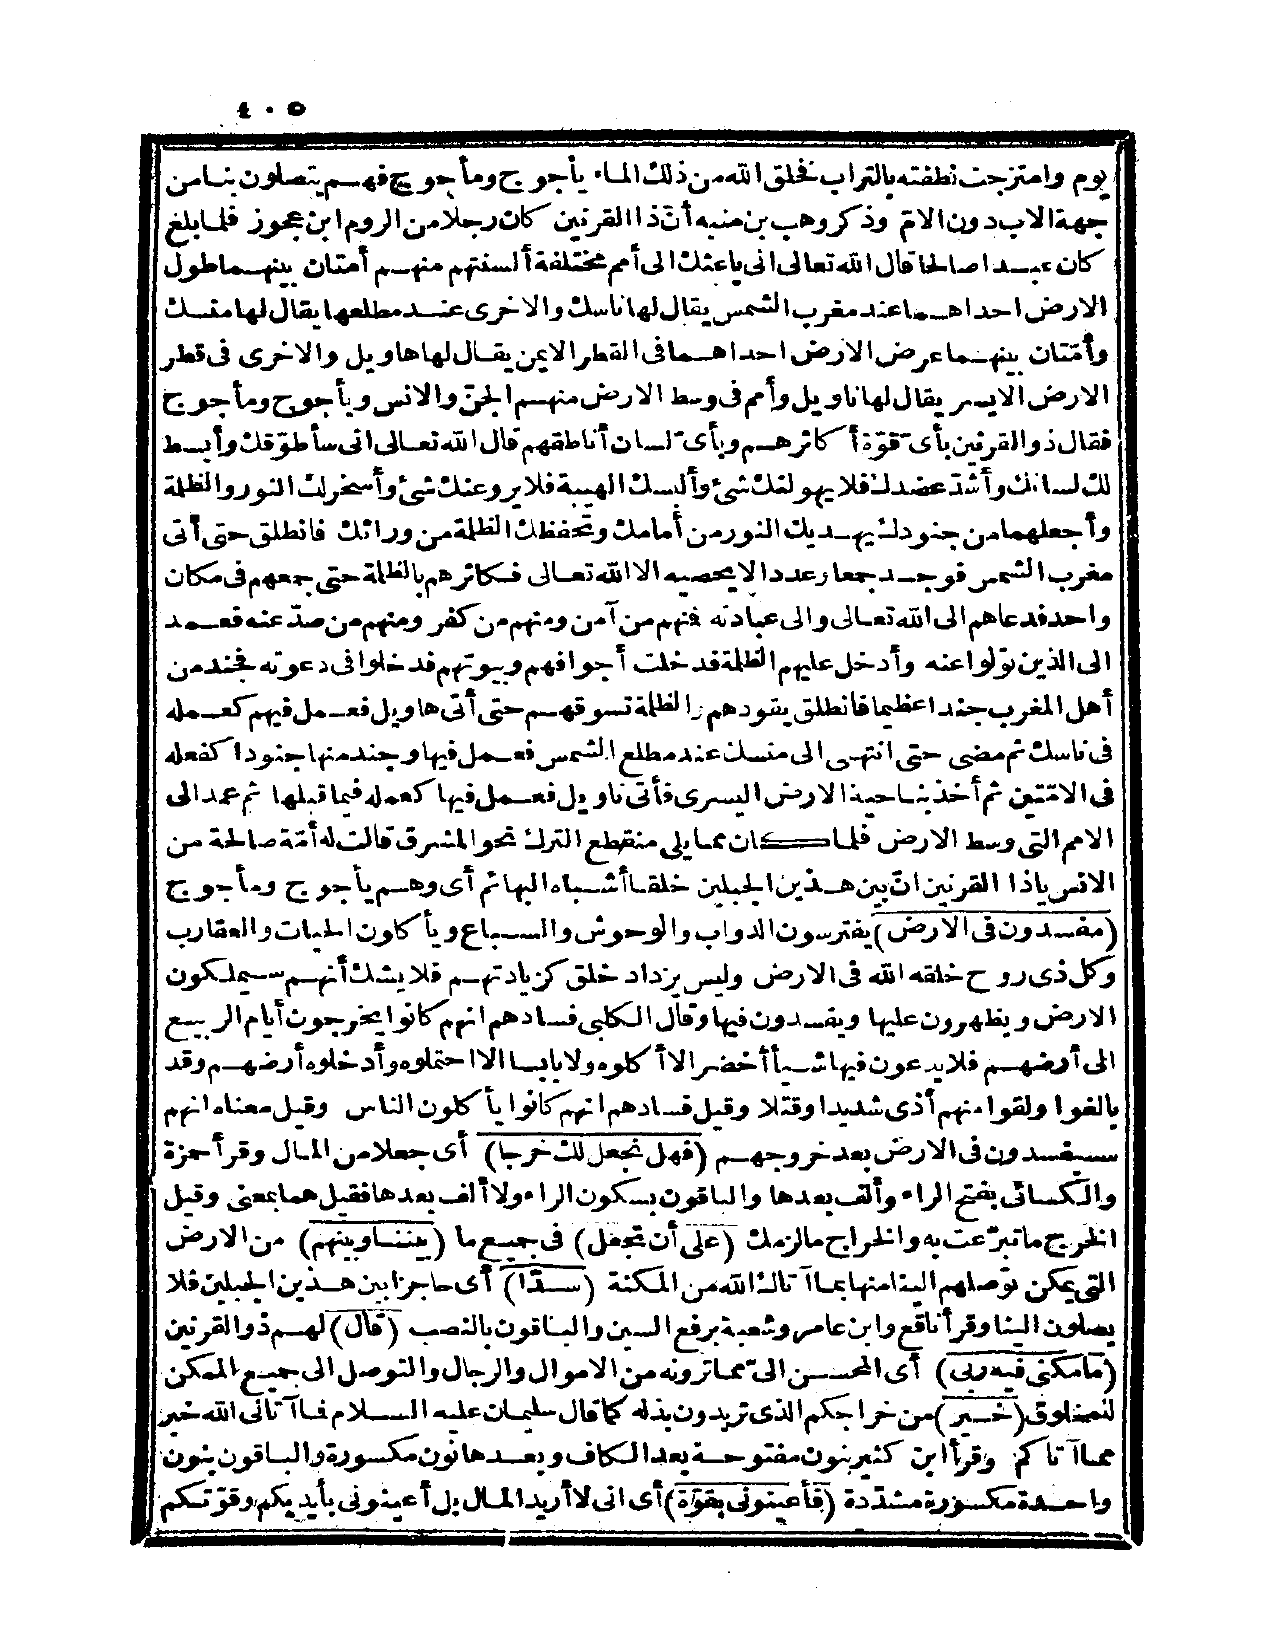 ٤٠٥
يوم وامتزجت نطفته بالتراب فخلق الله من ذلك الماء يأجوج ومأجوج فهم يتصلون بنا من
جهة الاب دون الامّ وذكر وهب بن منبه أنّ ذا القرنين كان رجلا من الروم ابن عجوز فلما بلغ
كان عبدا صالحا قال الله تعالى انى باعثك الى أمم مختلفة ألسنتهم منهم أمتان بينهما طول
الارض احداهما عند مغرب الشمس يقال لها ناسك والاخرى عند مطلعها يقال لها منسك
وأمّتان بينهما عرض الارض احداهما فى القطر الايمن يقال لها هاويل والاخرى فى قطر
الارض الايسر يقال لها ناويل وأمم فى وسط الارض منهم الجنّ والانس ويأجوج ومأجوج
فقال ذو القرنين بأىّ قوّة أكاثرهم وبأىّ لسان أناطقهم قال الله تعالى انى سأطوّقك وأبسط
لك لسانك وأشدّ عضدك فلا يهولنك شئ وألبسك الهيبة فلا يروعنك شئ وأسخر لك النور والظلمة
وأجعلهما من جنودك يهديك النور من أمامك وتحفظك الظلمة من ورائك فانطلق حتى أتى
مغرب الشمس فوجد جمعا وعددا لا يحصيه الا الله تعالى فكاثرهم بالظلمة حتى جمعهم فى مكان
واحد فدعاهم الى الله تعالى والى عبادته فنهم من آمن ومنهم من كفر ومنهم من صدّ عنه فعمد
الى الذين تولوا عنه وأدخل عليهم الظلمة فدخلت أجوافهم وبيوتهم فدخلوا فى دعوته فجند من
أهل المغرب جندا عظيما فانطلق يقودهم والظلمة تسوقهم حتى أتى هاويل فعمل فيهم كعمله
فى ناسك ثم مضى حتى انتهى الى منسك عند مطلع الشمس فعمل فيها وجند منها جنودا كفعله
فى الامّتين ثم أخذ بناحية الارض اليسرى فأتى ناويل فعمل فيها كعمله فيما قبلها ثم عمد الى
الامم التى وسط الارض فلما كان مما يلى منقطع الترك نحو المشرق قالت له أمّة صالحة من
الانس ياذا القرنين انّ بين هذين الجبلين خلقا أشباه البهائم أى وهم يأجوج ومأجوج
(مفسدون فى الارض) يفترسون الدواب والوحوش والسباع ويأكلون الحيات والعقارب
وكل ذى روح خلقه الله فى الارض وليس يزداد خلق كزيادتهم فلا يشك أنهم سيملكون
الارض ويظهرون عليها ويفسدون فيها وقال الكلبى فسادهم انهم كانوا يخرجون أيام الربيع
الى أرضهم فلا يدعون فيها شيأ أخضر الا أكلوه ولا يابسا الا احتملوه وأدخلوه أرضهم وقد
بالغوا ولقوا منهم أذى شديدا وقتلا وقيل فسادهم انهم كانوا يأكلون الناس وقيل معناه انهم
سيفسدون فى الارض بعد خروجهم (فهل نجعل لك خرجا) أى جعلا من المال وقرأ حمزة
والكسائى بفتح الراء وألف بعدها والباقون بسكون الراء ولا ألف بعدها فقيل هما بمعنى وقيل
الخرج ما تبرّعت به والخراج ما لزمك (على أن تجعل) فى جميع ما (بيننا وبينهم) من الارض
التى يمكن توصلهم الينا منها بما آتاك الله من المكنة (سدّا) أى حاجزا بين هذين الجبلين فلا
يصلون الينا وقرأ نافع وابن عامر وشعبة برفع السين والباقون بالنصب (قال) لهم ذو القرنين
(ما مكنى فيه ربى) أى المحسن الىّ مما ترونه من الاموال والرجال والتوصل الى جميع الممكن
للمخلوق (خير) من خراجكم الذى تريدون بذله كما قال سليمان عليه السلام فما آتانى الله خير
مما آتاكم وقرأ ابن كثير بنون مفتوحة بعد الكاف وبعدها نون مكسورة والباقون بنون
واحدة مكسورة مشدّدة (فأعينونى بقوّة) أى انى لا أريد المال بل أعينونى بأيديكم وقوّتكم